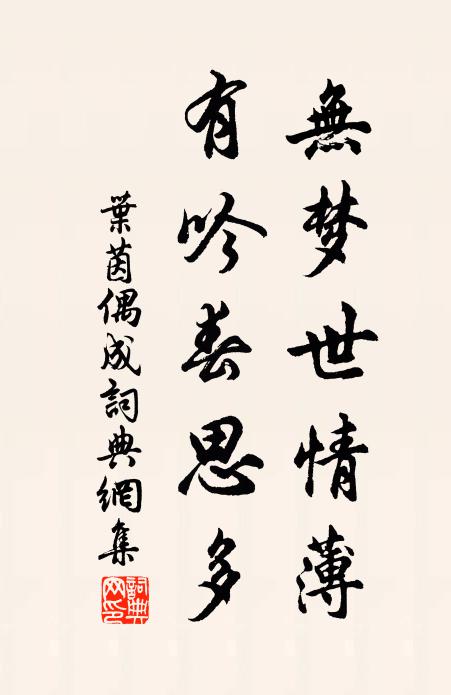 無梦世情薄
有吟春思多
葉茵偶成詞典網集
詞典网印